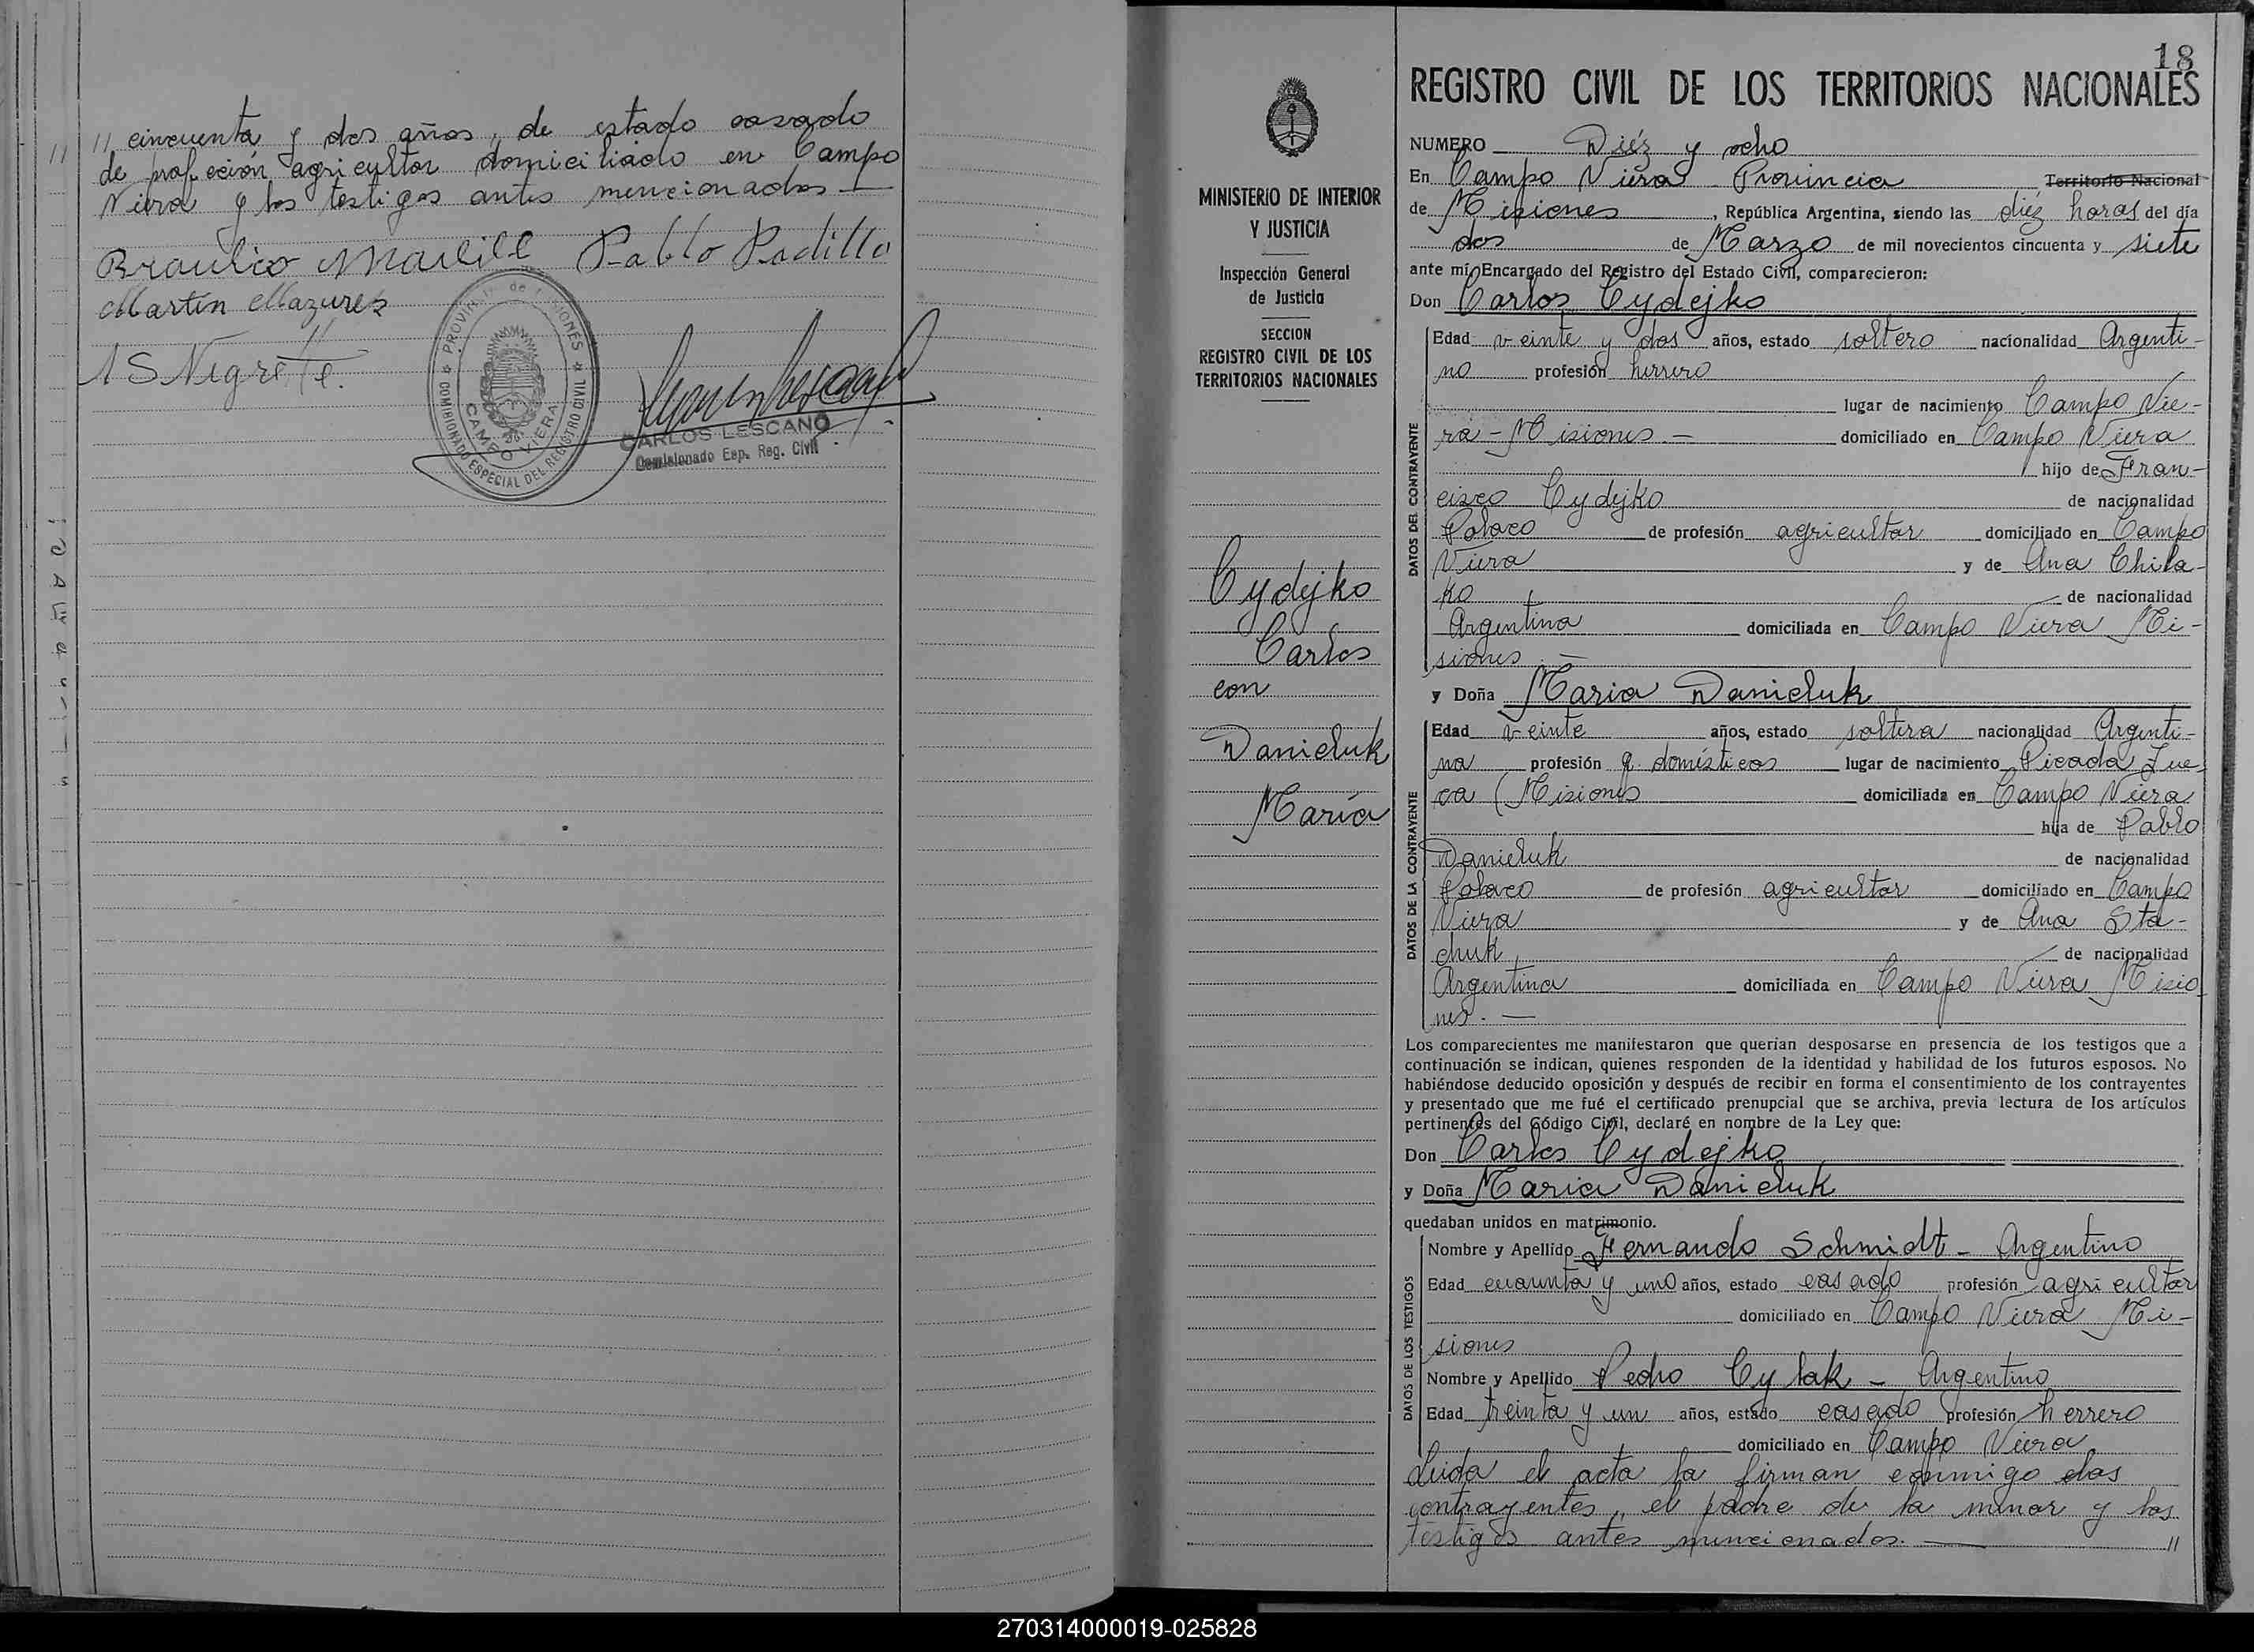 // cincuenta y dos años, de estado casado
de profeción agricultor domiciliado en Campo
Viera y los testigos antes mencionados —
Braulio Pablo Padilla
Martín Mazurek
S Negrete.
PROVINCIA de MISIONES
COMISIONADO ESPECIAL DEL REGISTRO CIVIL
CAMPO VIERA
CARLOS LESCANO
Comisionado Esp. Reg. Civil
MINISTERIO DE INTERIOR
Y JUSTICIA
Inspección General
de Justicia
SECCION
REGISTRO CIVIL DE LOS
TERRITORIOS NACIONALES
Cydejko
Carlos
con
Danieluk
María
18
REGISTRO CIVIL DE LOS TERRITORIOS NACIONALES
NUMERO Diéz y ocho
En Campo Viera Provincia Territorio Nacional
de Misiones, República Argentina, siendo las diéz horas del día
dos de Marzo de mil novecientos cincuenta y siete
ante mí, Encargado del Registro del Estado Civil, comparecieron:
Don Carlos Cydejko
DATOS DEL CONTRAYENTE
Edad veinte y dos años, estado soltero nacionalidad Argenti-
no profesión herrero
lugar de nacimiento Campo Vie-
ra - Misiones — domiciliado en Campo Viera
hijo de Fran-
cisco Cydejko de nacionalidad
Polaco de profesión agricultor domiciliado en Campo
Viera y de Ana Chila-
ko de nacionalidad
Argentina domiciliada en Campo Viera Mi-
siones. —
y Doña Maria Danieluk
DATOS DE LA CONTRAYENTE
Edad veinte años, estado soltera nacionalidad Argenti-
na profesión q. domésticos lugar de nacimiento Picada
(Misiones domiciliada en Campo Viera
hija de Pablo
Danieluk de nacionalidad
Polaco de profesión agricultor domiciliado en Campo
Viera y de Ana Sta-
chuk de nacionalidad
Argentina domiciliada en Campo Viera Misio-
nes. —
Los comparecientes me manifestaron que querían desposarse en presencia de los testigos que a
continuación se indican, quienes responden de la identidad y habilidad de los futuros esposos. No
habiéndose deducido oposición y después de recibir en forma el consentimiento de los contrayentes
y presentado que me fué el certificado prenupcial que se archiva, previa lectura de los artículos
pertinentes del Código Civil, declaré en nombre de la Ley que:
Don Carlos Cydejko
y Doña Maria Danieluk
quedaban unidos en matrimonio.
DATOS DE LOS TESTIGOS
Nombre y Apellido Fernando Schmidt - Argentino
Edad cuarenta y uno años, estado casado profesión agricultor
domiciliado en Campo Viera Mi-
siones
Nombre y Apellido Pedro Cylak - Argentino
Edad treinta y un años, estado casado profesión herrero
domiciliado en Campo Viera
Leida el acta la firman conmigo los
contrayentes, el padre de la menor y los
testigos antes mencionados. — //
270314000019-025828